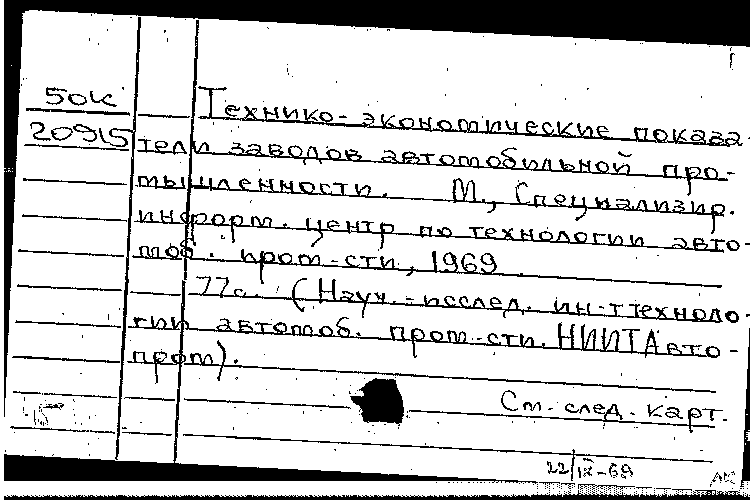 50к
20915
Технико-экономические показа-
тели заводов автомобильной про-
мышленности. М., Специализир.
информ. центр по технологии авто-
моб. пром-сти, 1969.
77с. (Науч.-исслед. ин-т техноло-
гии автомоб. пром-сти. НИИТАвто-
пром).
См. след. карт.
22/IX-69